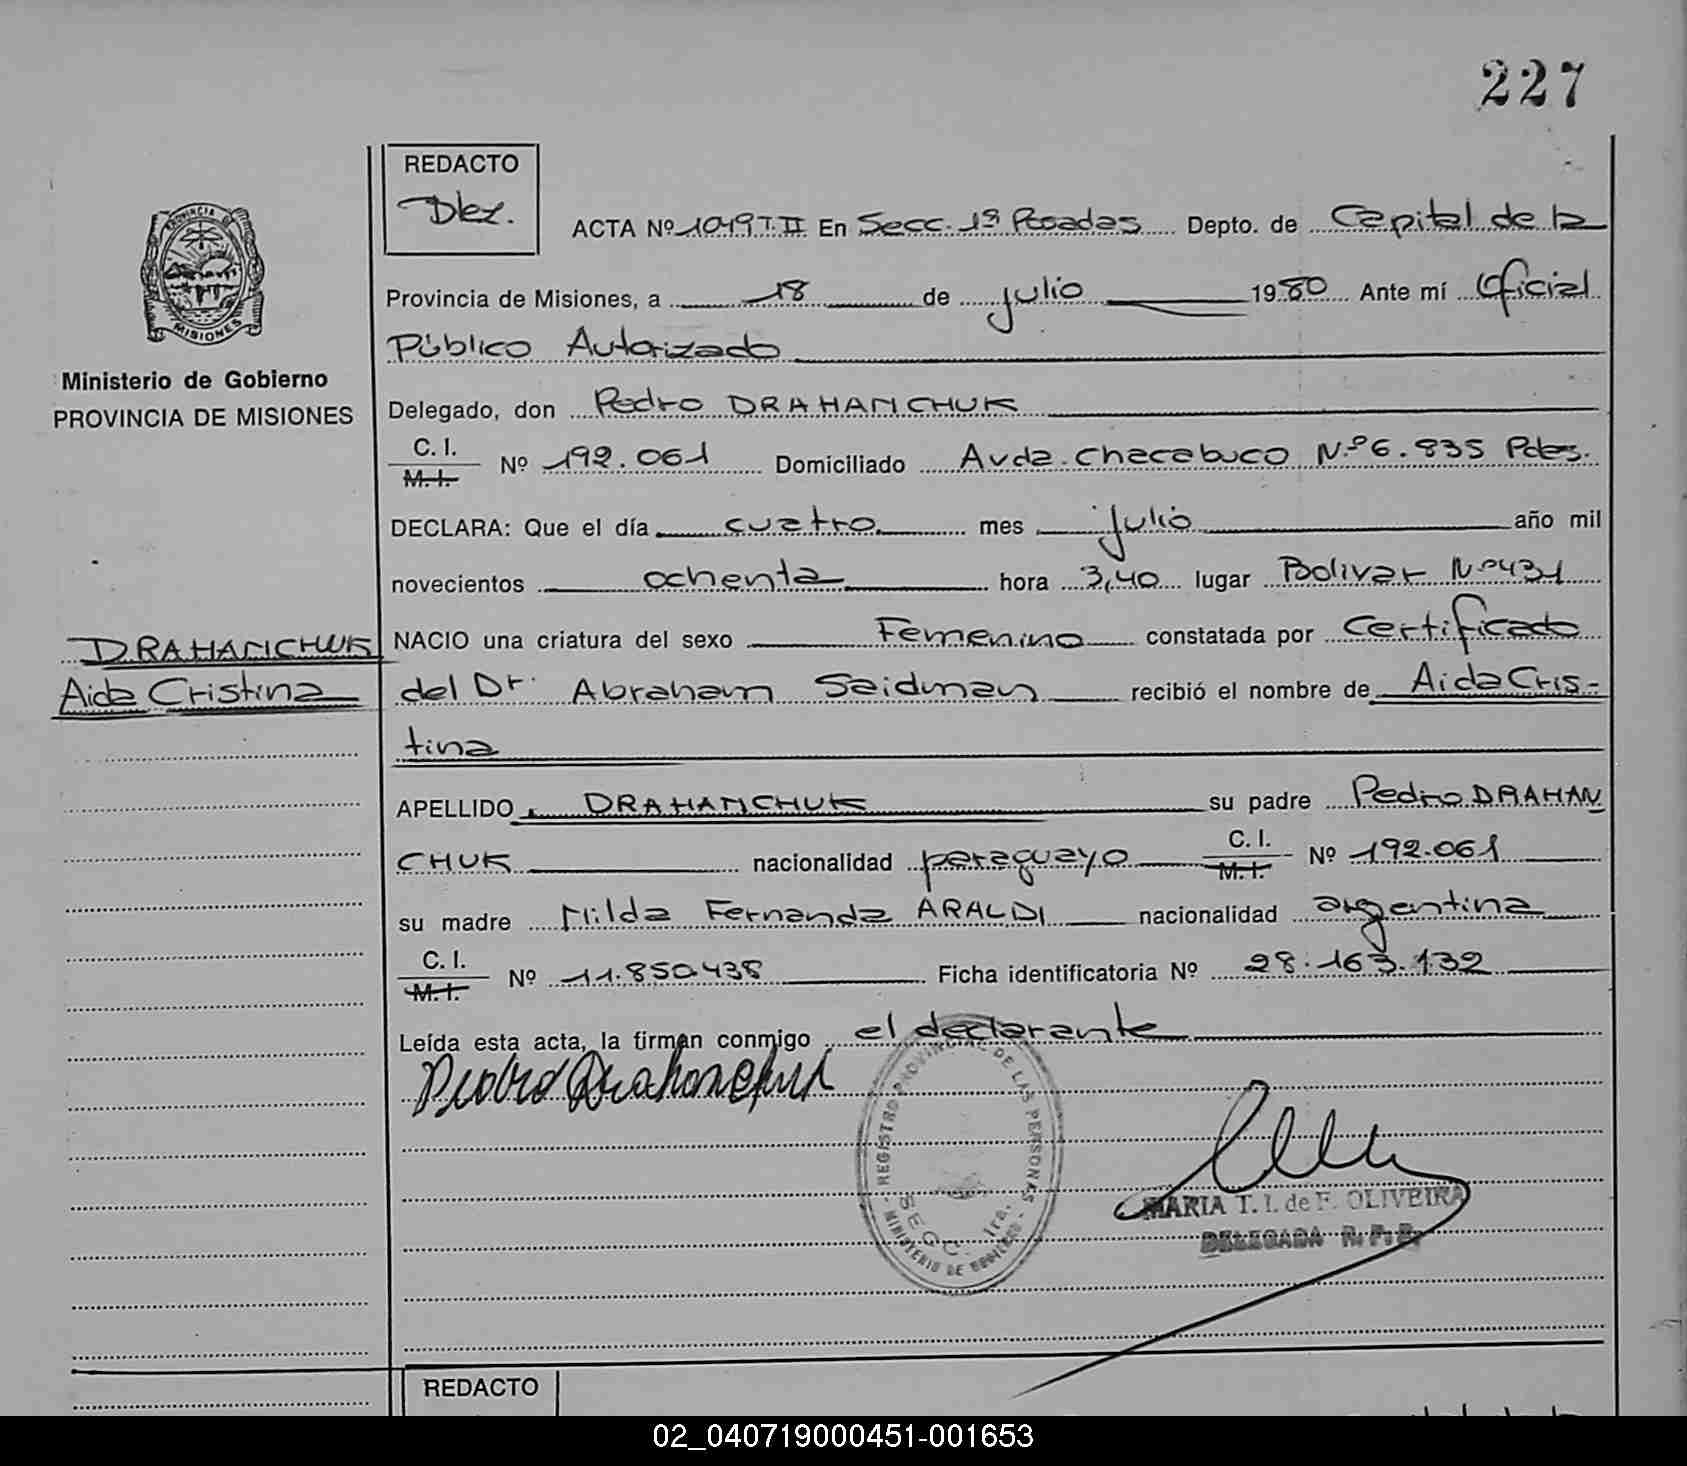 227
REDACTO
Dlez.
ACTA Nº 1049 T. II En Secc. 1ª Posadas Depto. de Capital de la
Provincia de Misiones, a 18 de julio 1980 Ante mí Oficial
Público Autorizado
PROVINCIA DE MISIONES
Ministerio de Gobierno
PROVINCIA DE MISIONES
Delegado, don Pedro DRAHANCHUK
C. I.
M. I. Nº 192.061 Domiciliado Avda. Chacabuco Nº 6.835 Pdas.
DECLARA: Que el día cuatro mes julio año mil
novecientos ochenta hora 3,40 lugar Bolivar Nº 431
DRAHANCHUK
Aida Cristina
NACIO una criatura del sexo Femenino constatada por Certificado
del Dr. Abraham Saidman recibió el nombre de Aida Cris-
tina
APELLIDO DRAHANCHUK su padre Pedro DRAHAN
CHUK nacionalidad paraguayo C. I. M. I. Nº 192.061
su madre Nilda Fernanda ARALDI nacionalidad argentina
C. I.
M. I. Nº 11.850.438 Ficha identificatoria Nº 28.163.132
Leída esta acta, la firman conmigo el declarante
Pedro Drahanchuk
REGISTRO PROVINCIAL DE LAS PERSONAS
SECC. 1ra.
MINISTERIO DE GOBIERNO
MARIA T. I. de F. OLIVEIRA
DELEGADA R. P. P.
REDACTO
02_040719000451-001653